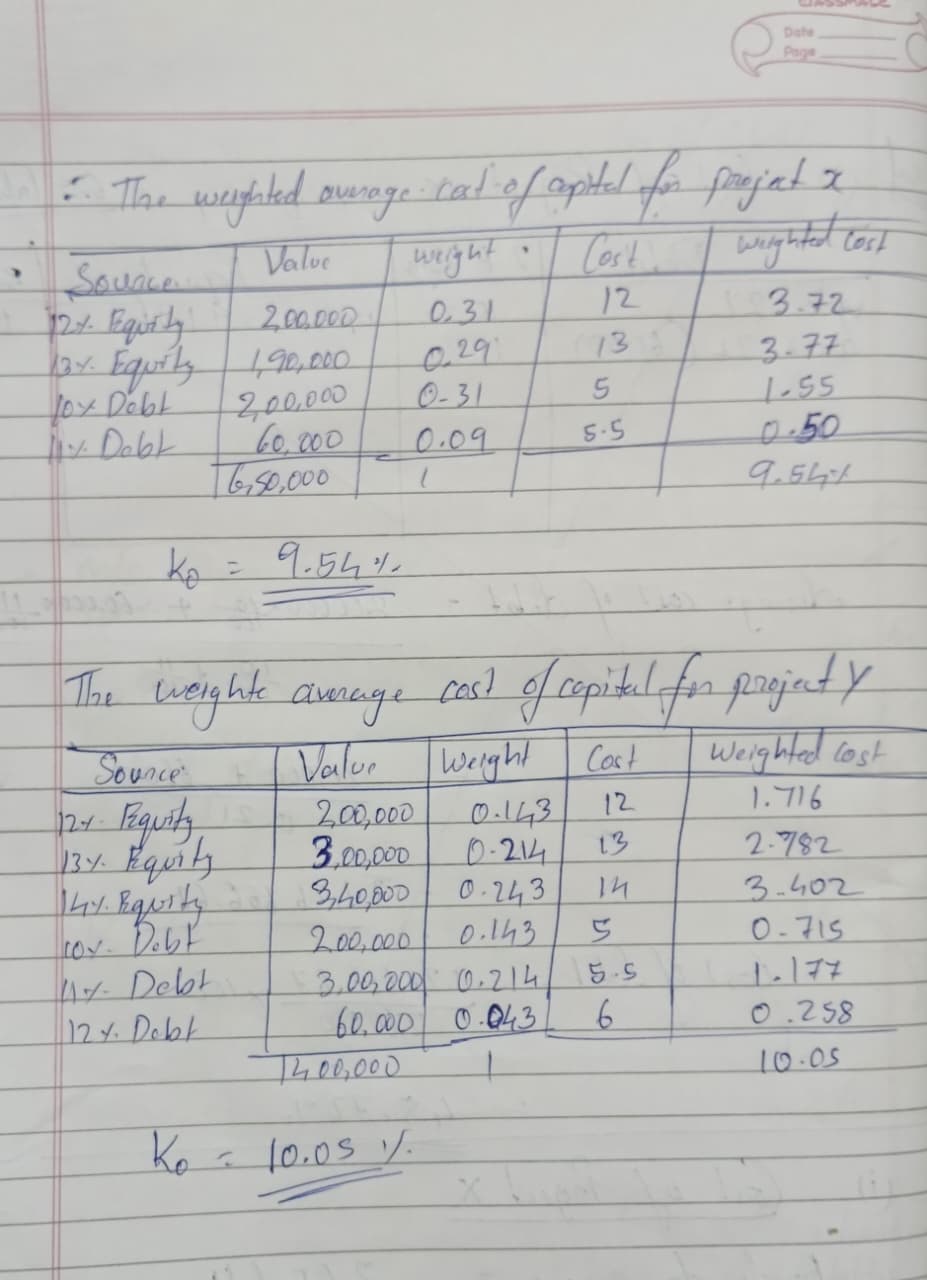 CLASSMATE
Date
Page
∴ The weighted average cost of capital for project x
Source Value weight Cost weighted cost
12% Equity 2,00,000 0.31 12 3.72
13% Equity 1,90,000 0.29 13 3.77
10% Debt 2,00,000 0.31 5 1.55
11% Debt 60,000 0.09 5.5 0.50
6,50,000 1 9.54%
K₀ = 9.54%
The weighte average cost of capital for project Y
Source Value Weight Cost Weighted cost
12% Equity 2,00,000 0.143 12 1.716
13% Equity 3,00,000 0.214 13 2.782
14% Equity 3,40,000 0.243 14 3.402
10% Debt 2,00,000 0.143 5 0.715
11% Debt 3,00,000 0.214 5.5 1.177
12% Debt 60,000 0.043 6 0.258
1400,000 1 10.05
K₀ = 10.05 %